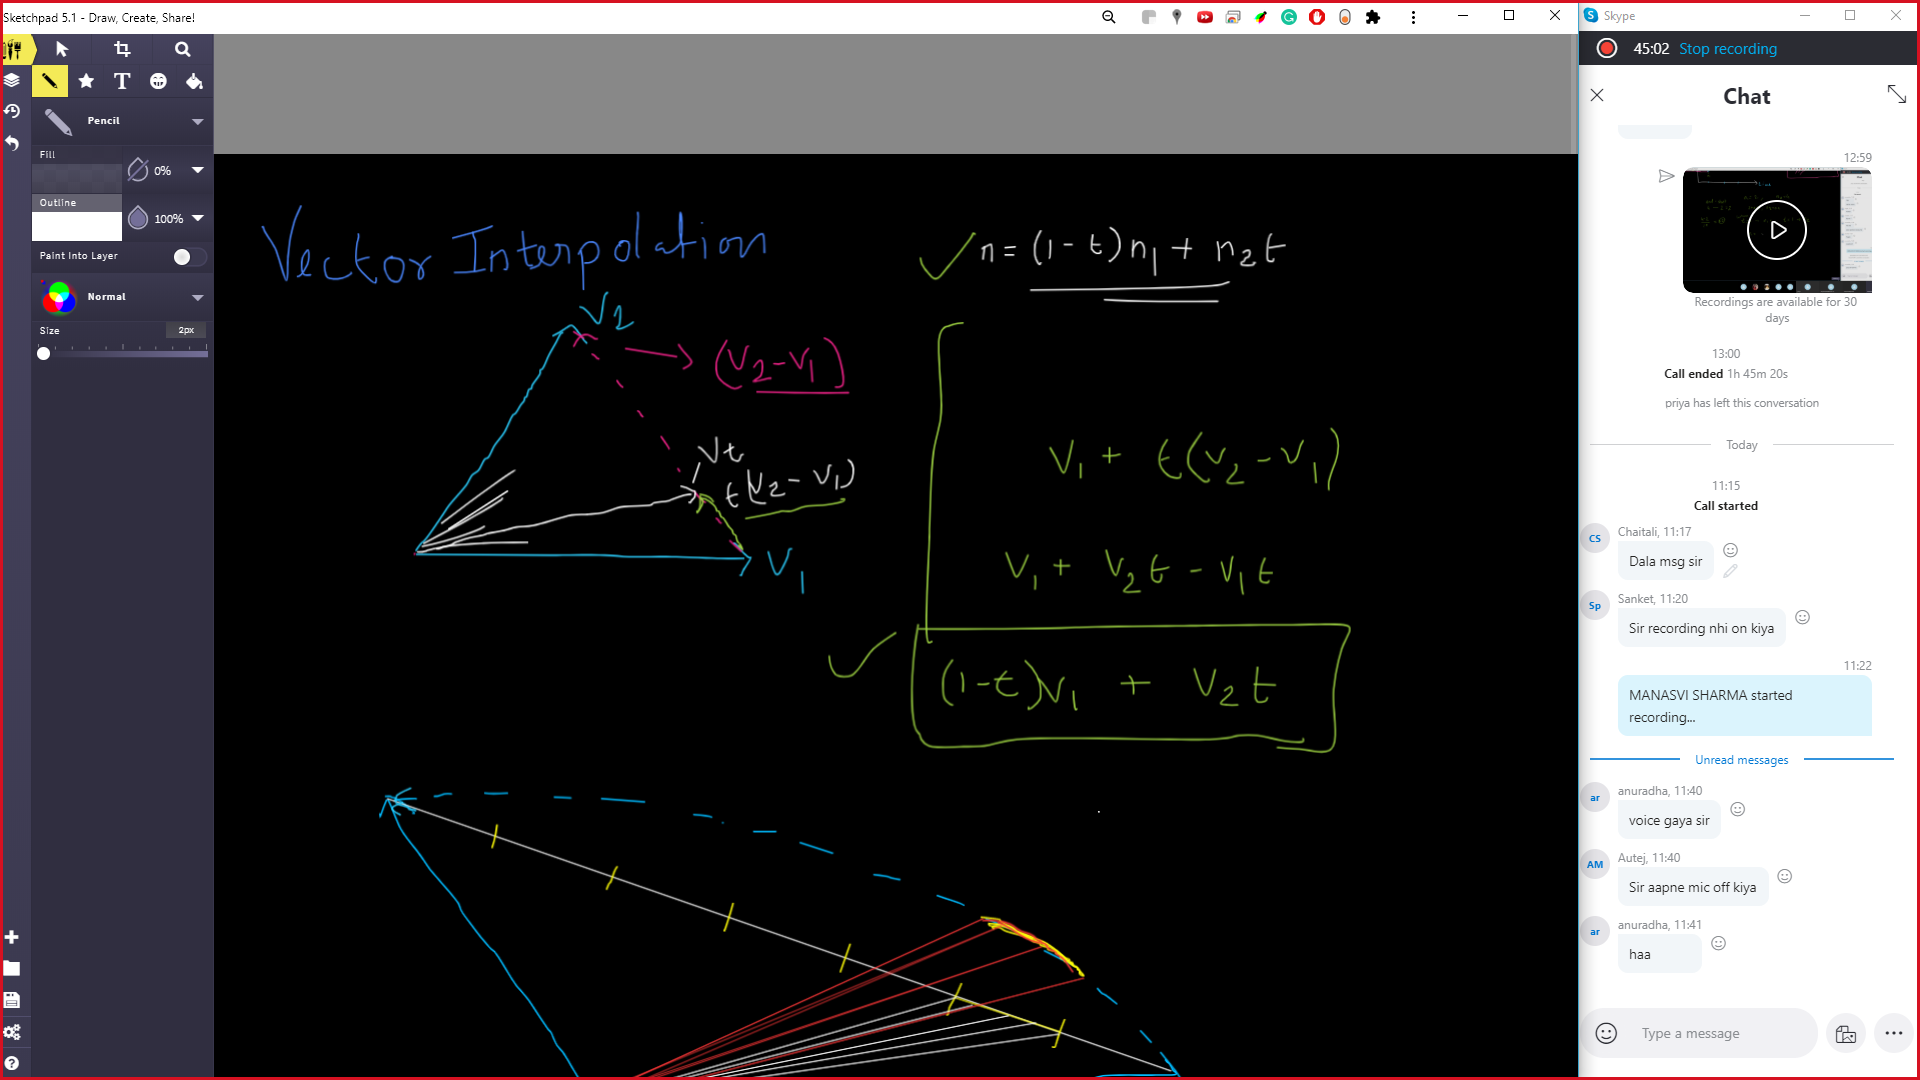 Sketchpad 5.1 - Draw, Create, Share!
T
Pencil
Fill
0%
Outline
100%
Paint Into Layer
Normal
Size
2px
Vector Interpolation
n = (1-t)n1 + n2t
V2
(V2-V1)
Vt
t(V2-V1)
V1
V1 + t(V2-V1)
V1 + V2t - V1t
(1-t)V1 + V2t
Skype
45:02 Stop recording
Chat
12:59
Recordings are available for 30
days
13:00
Call ended 1h 45m 20s
priya has left this conversation
Today
11:15
Call started
CS
Chaitali, 11:17
Dala msg sir
Sp
Sanket, 11:20
Sir recording nhi on kiya
11:22
MANASVI SHARMA started
recording...
Unread messages
ar
anuradha, 11:40
voice gaya sir
AM
Autej, 11:40
Sir aapne mic off kiya
ar
anuradha, 11:41
haa
Type a message